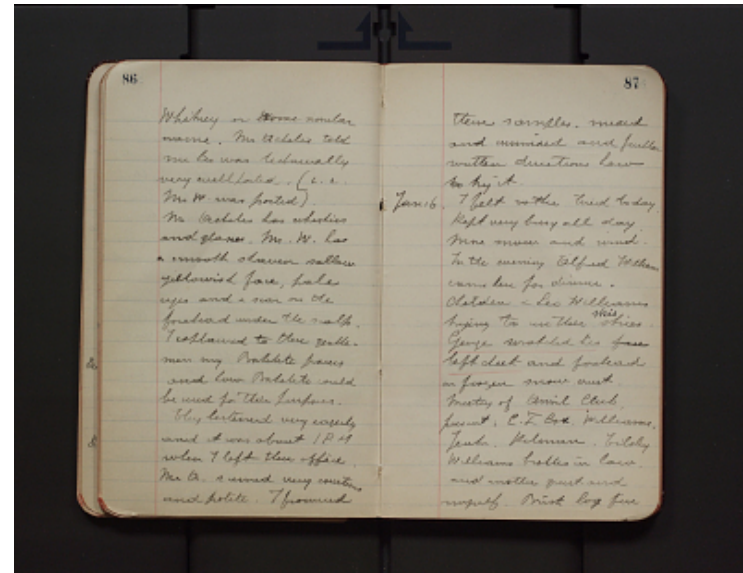 86
Whitney or some similar
name. Mr Acheles told
me he was technically
very well posted. (i. e.
Mr W. was posted).
Mr. Acheles has whiskers
and glasses. Mr. W. has
a smooth shaven sallow
yellowish face, pale
eyes and a scar on the
forehead under the scalp.
I explained to these gentle-
men my Bakelite
and how Bakelite could
be used for their purposes.
They listened very eagerly
and it was about 1 P.M
when I left their office.
Mr. A. seemed very courteous
and polite. I promised
87
them samples. mixed
and unmixed and further
written directions how
to try it.
Jan. 16. I felt rather tired today
Kept very busy all day.
More snow and wind.
In the evening Elfred
came here for dinner.
& Leo Williams
skis
trying to use their
George scratched his
left cheek and forehead
on frozen snow crust.
Meeting of Anvil Club.
present. Williams,
Williams brother in law
and another guest and
myself. Brisk log fire